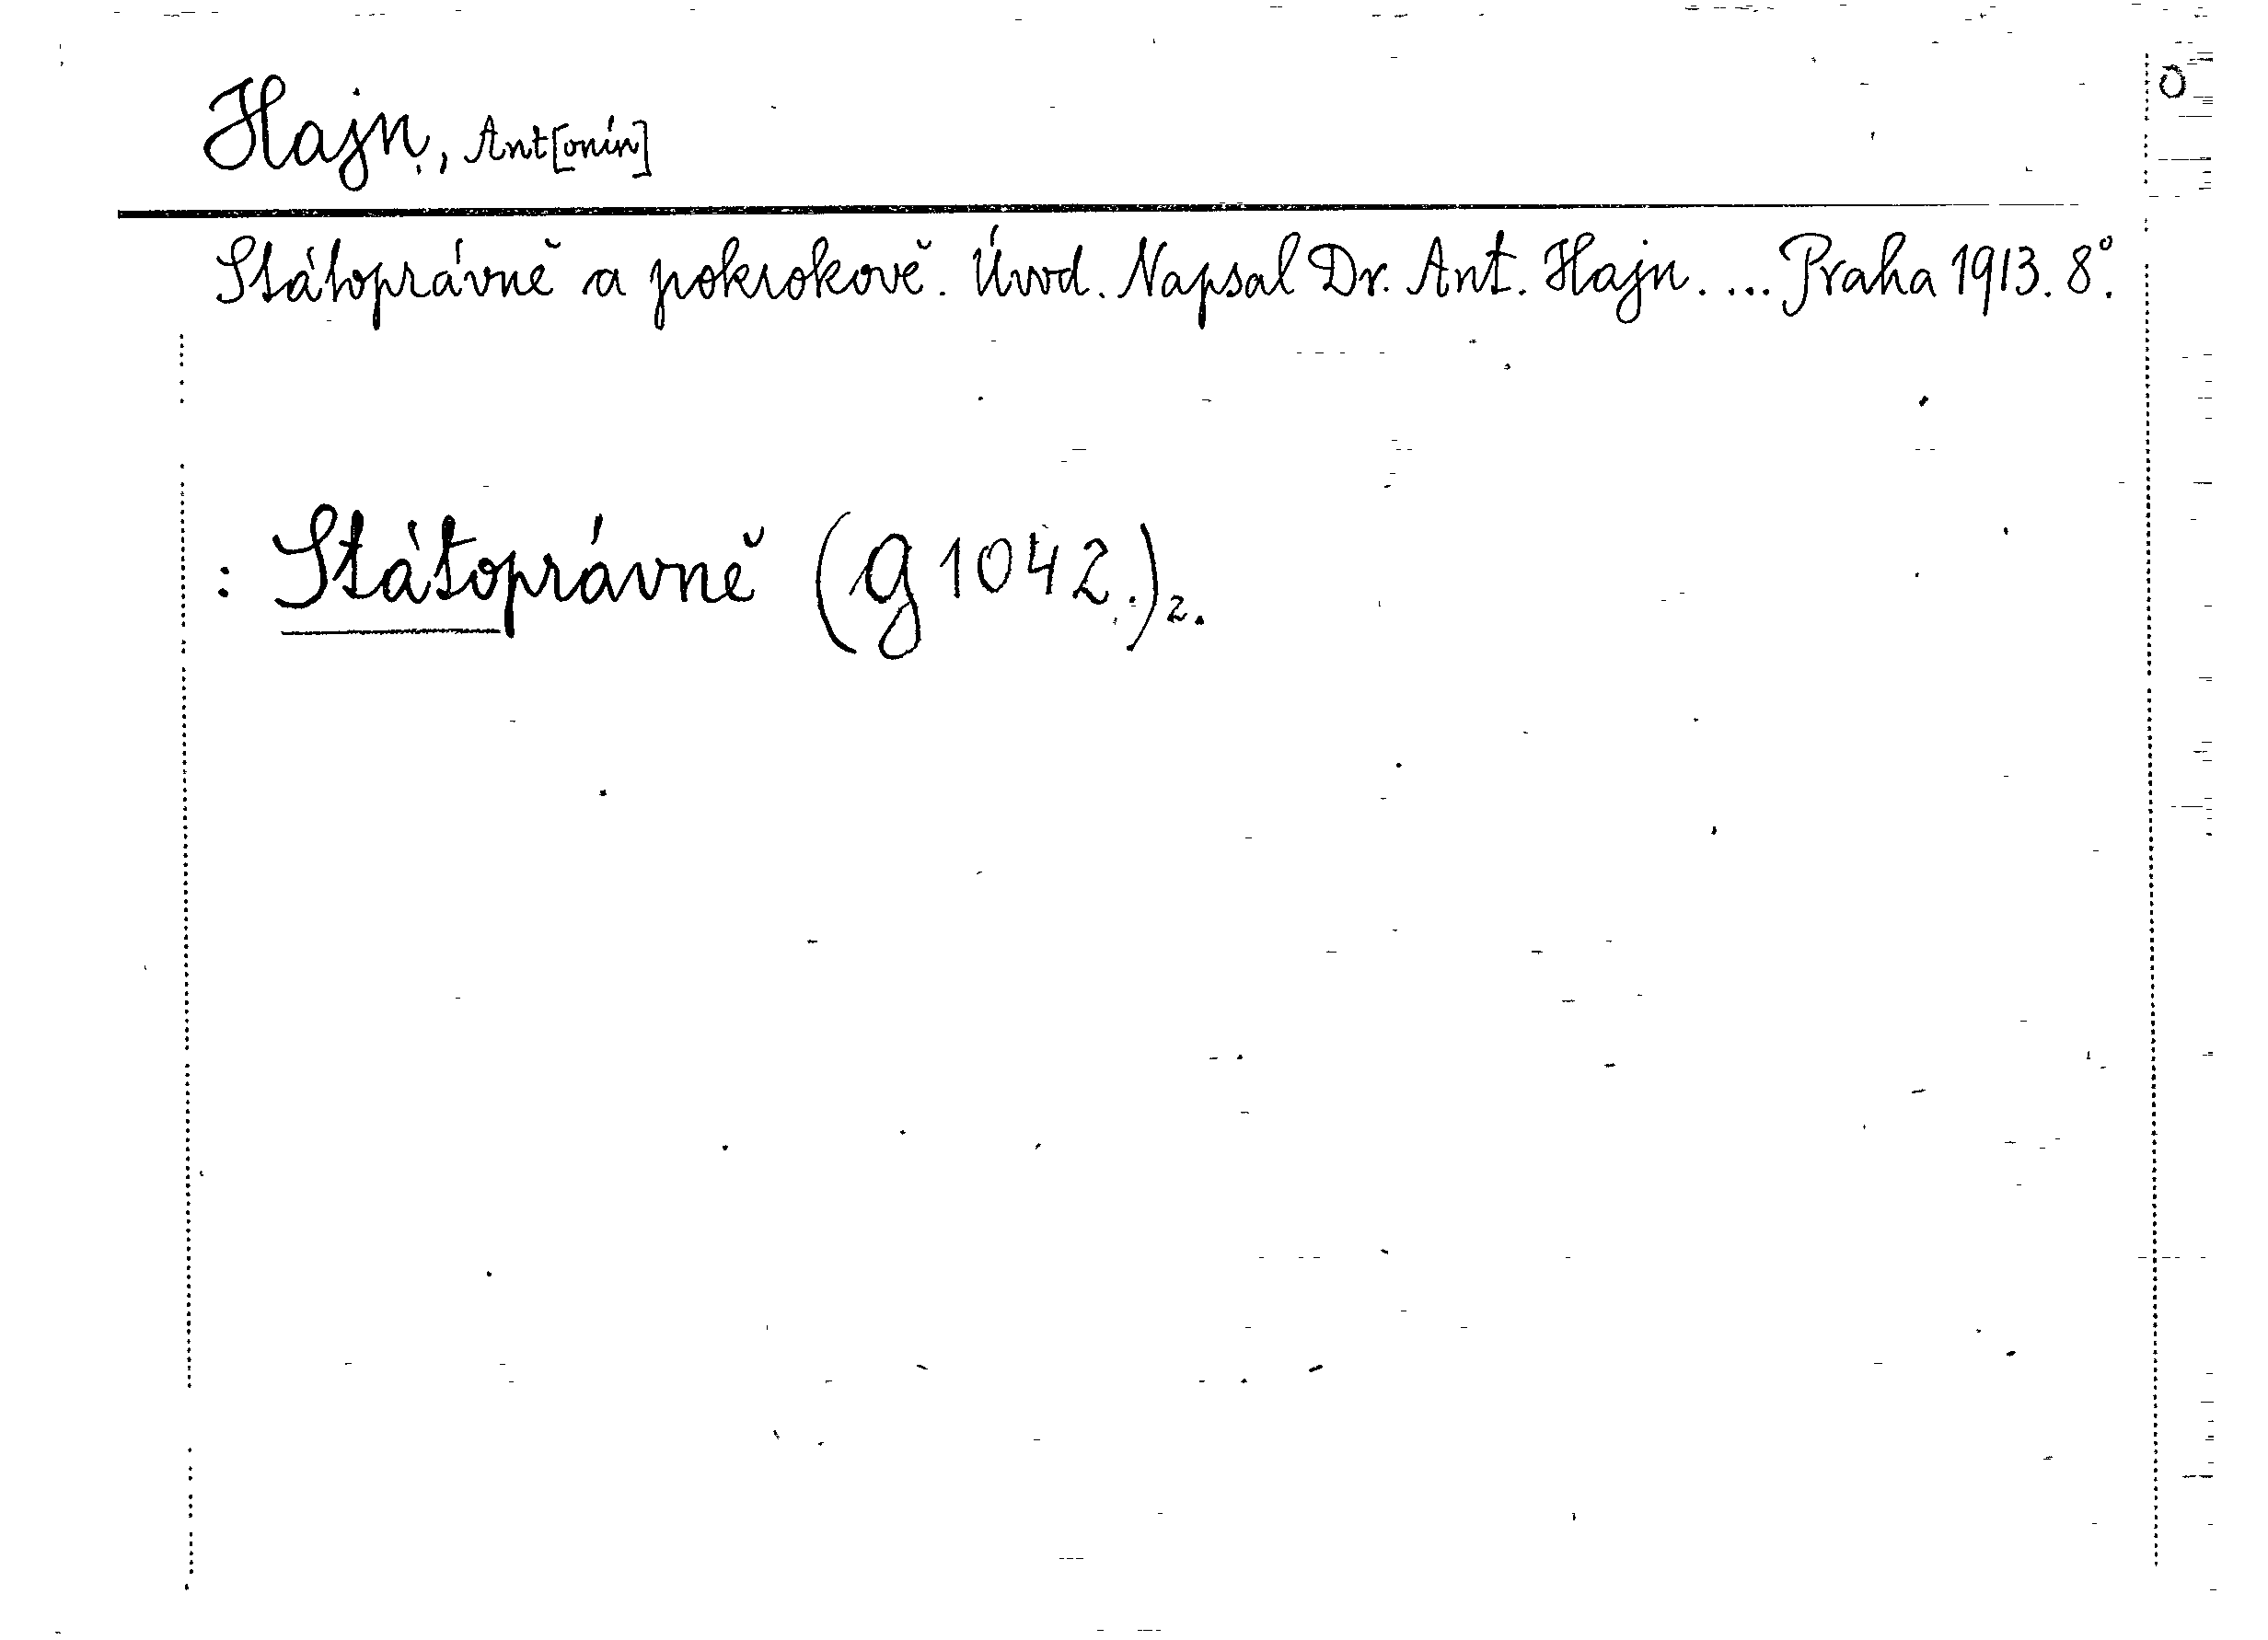 Hajn, Ant[onín]
O
Státoprávně a pokrokově. Úvod. Napsal Dr. Ant. Hajn. ... Praha 1913. 8°.
: Státoprávně (g 1042.)2.